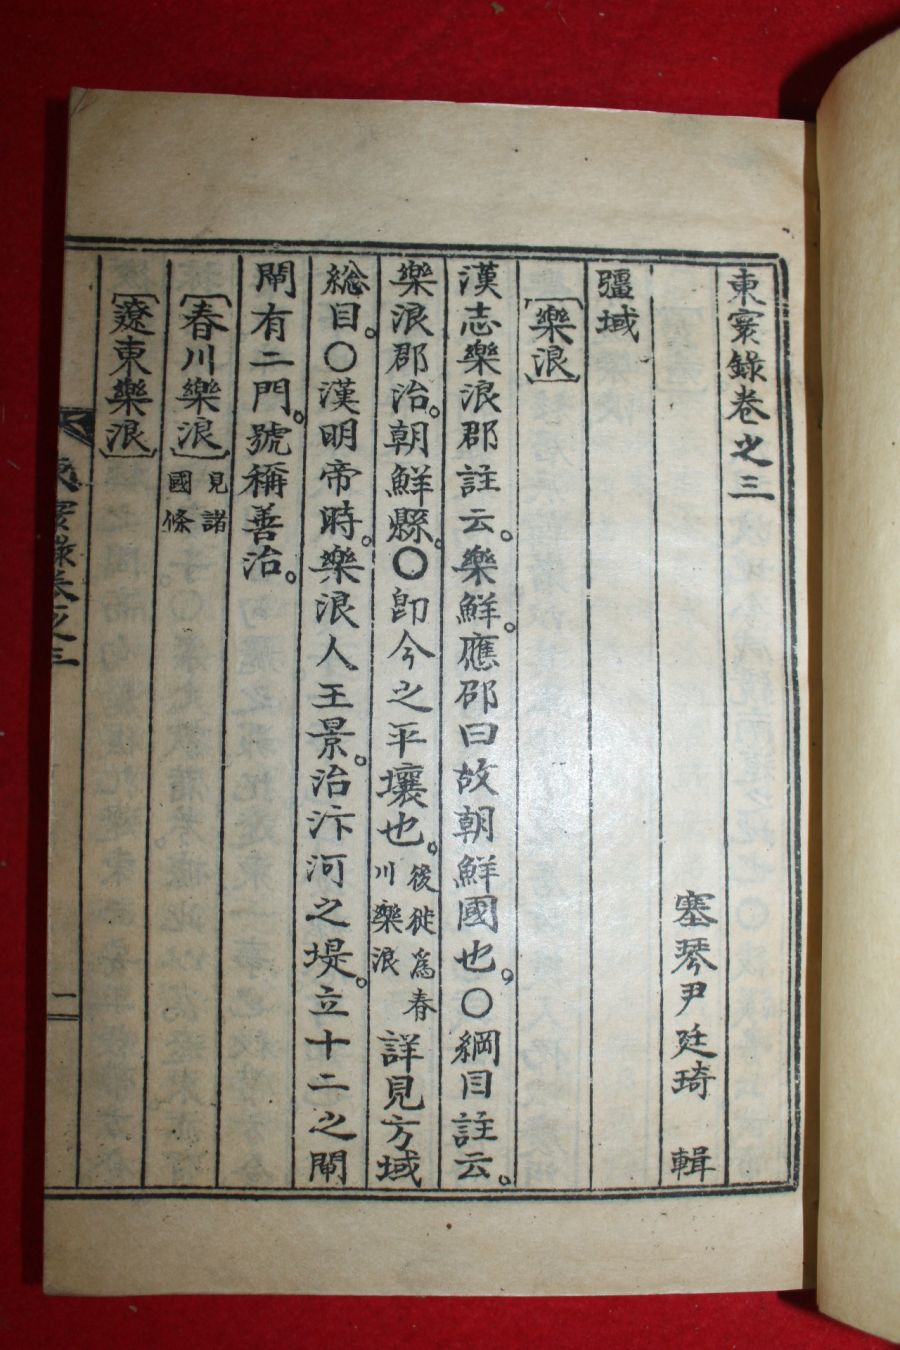 東寰錄卷之三
塞琴尹廷琦 輯
彊域
[樂浪]
漢志樂浪郡註云。樂鮮。應邵曰故朝鮮國也。〇綱目註云。
樂浪郡治。朝鮮縣。〇卽今之平壤也。後徙爲春川樂浪詳見方域
総目。〇漢明帝時。樂浪人王景。治汴河之堤。立十二之閘
閘有二門。號稱善治。
[春川樂浪]見諸國條
[遼東樂浪]
東寰錄卷之三
一